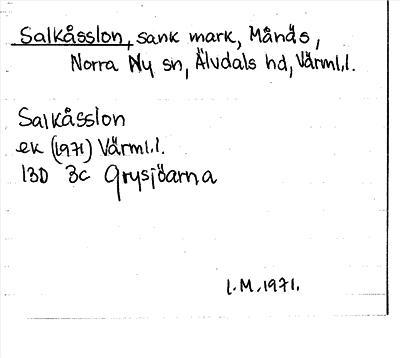 Salkåsslon, sank mark, Månäs,
Norra Ny sn, Älvdals hd, Värml.l.
Salkåsslon
ek (1971) Värml.l.
13D 3c Grysjöarna
L.M. 1971.